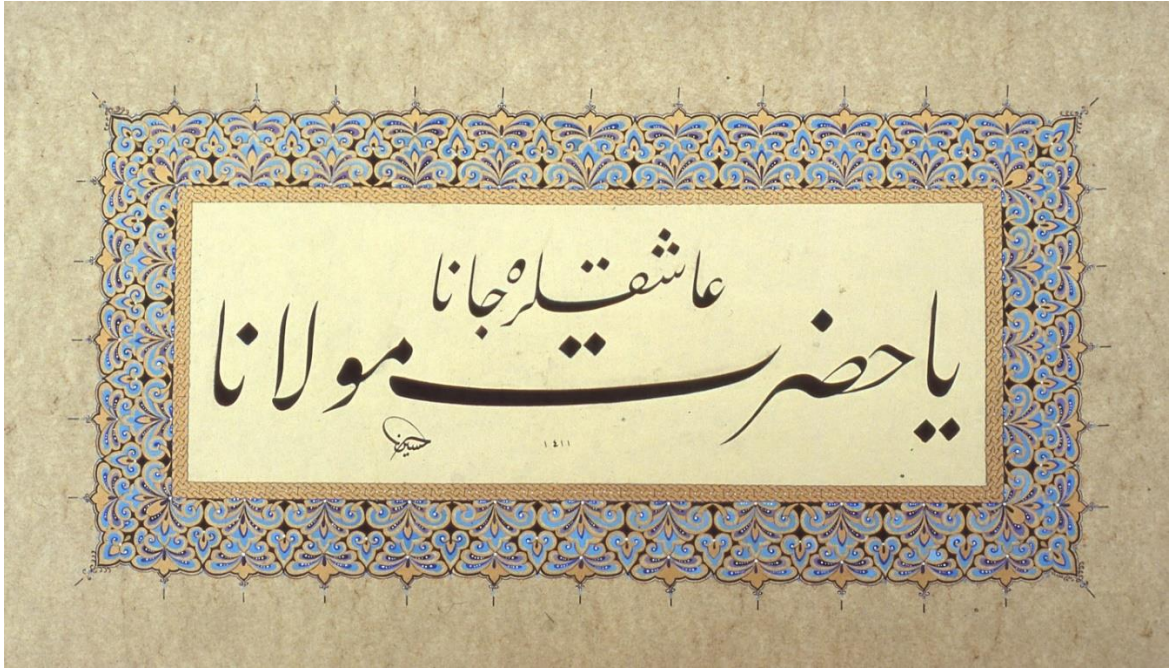 عاشقلره جانا
يا حضرت مولانا
حسين
١٤١١